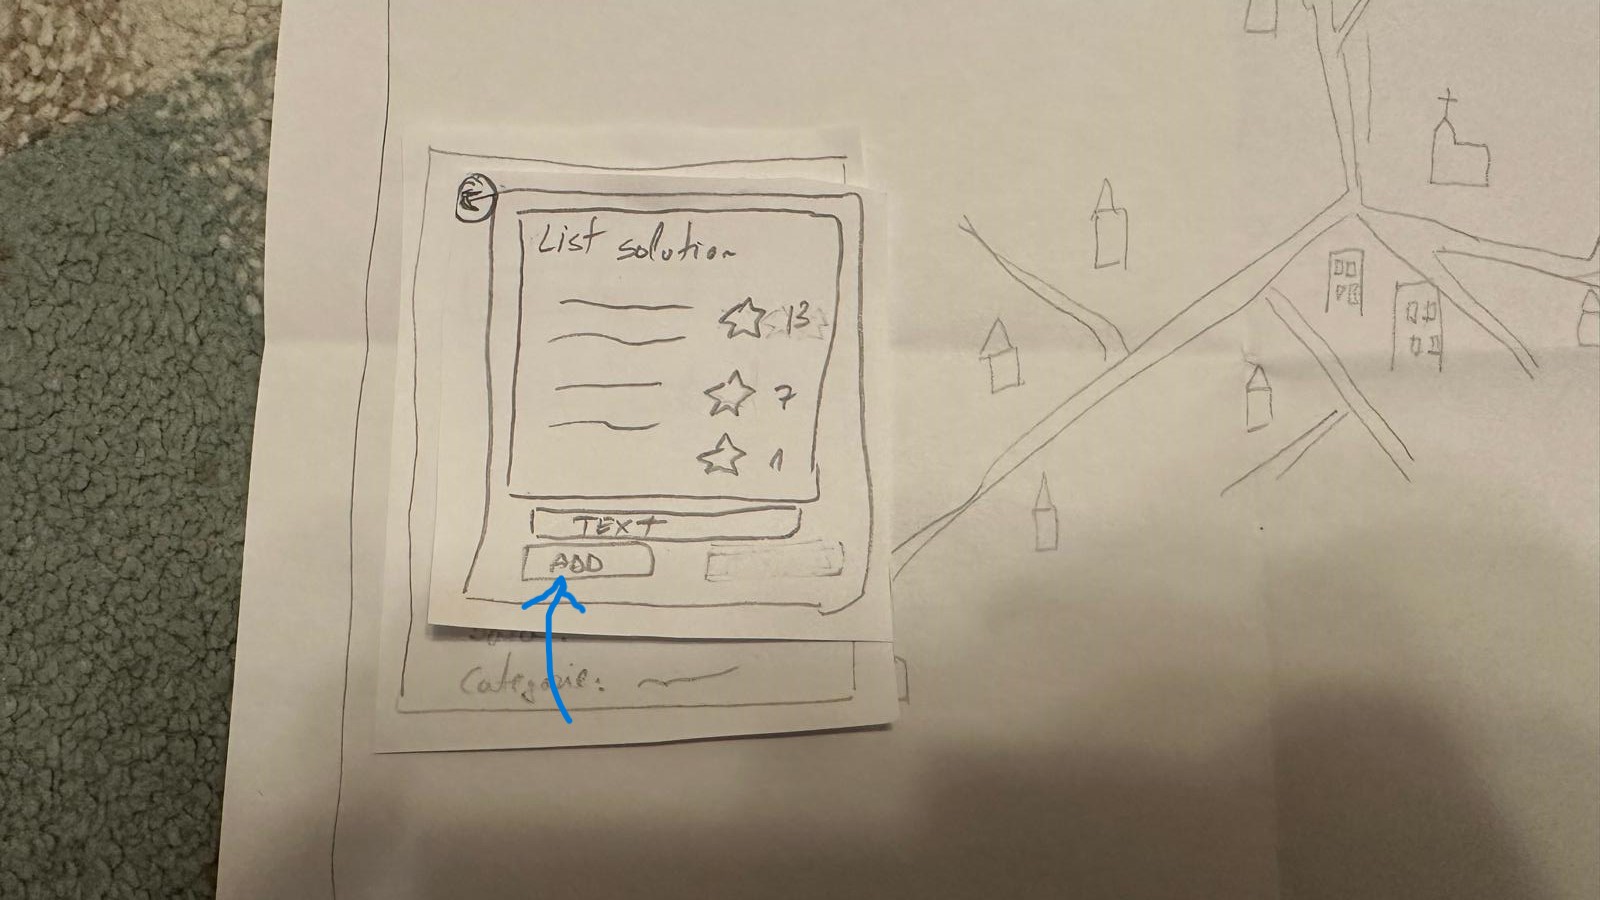 List solution
13
7
1
TEXT
ADD
Categorie: